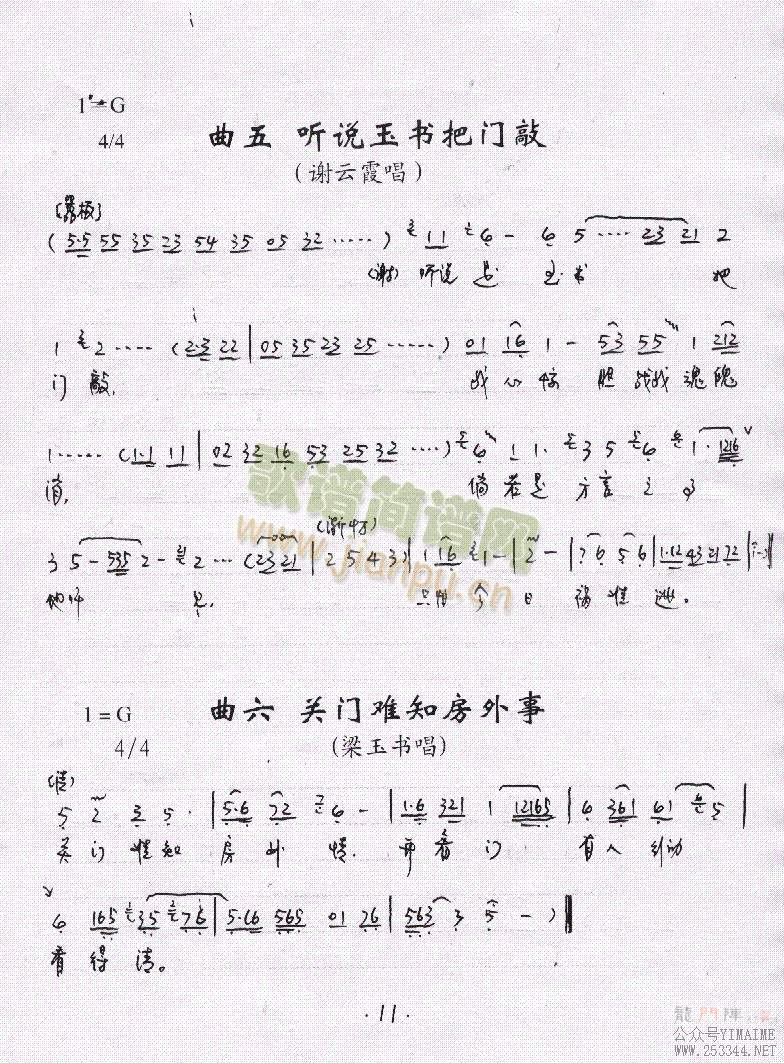 1=G
4/4
曲五 听说玉书把门敲
(谢云霞唱)
(5·5 55 35 23 54 35 05 32 ·····) 11 6 - 6 5 ···· 23 21 2
(谢) 听说是 玉书 把
1 2 ···· (2·3 22 | 05 35 23 25 ······) 01 16 1 - 53 55 1 212
门 敲, 战心惊 胆战战魂魄
1 ····· (1·1 11 | 02 32 16 53 25 32 ····) 6 1 1· 3 5 6 1· 1216
消, 倘若是 方言
3 5 - 535 2 - 2 ··· (2321 | 2 5 4 3) | 1 16 1 - | 2 - | 76 56 | 1·12 43 21 72 | 1 - ) ||
只怕今日祸难逃。
1=G
4/4
曲六 关门难知房外事
(梁玉书唱)
5 2 3 5· | 5·6 72 6 - | 1·6 321 1 12165 | 6 361 61 5 |
关门难知房外情. 开看门 有人
6 165 35 76 | 5·616 565 01 76 | 563 3 5 - ) ||
看得清。
·11·
歌谱简谱网
www.jianpu.cn
龍門陣
公众号YIMAIME
WWW.253344.NET